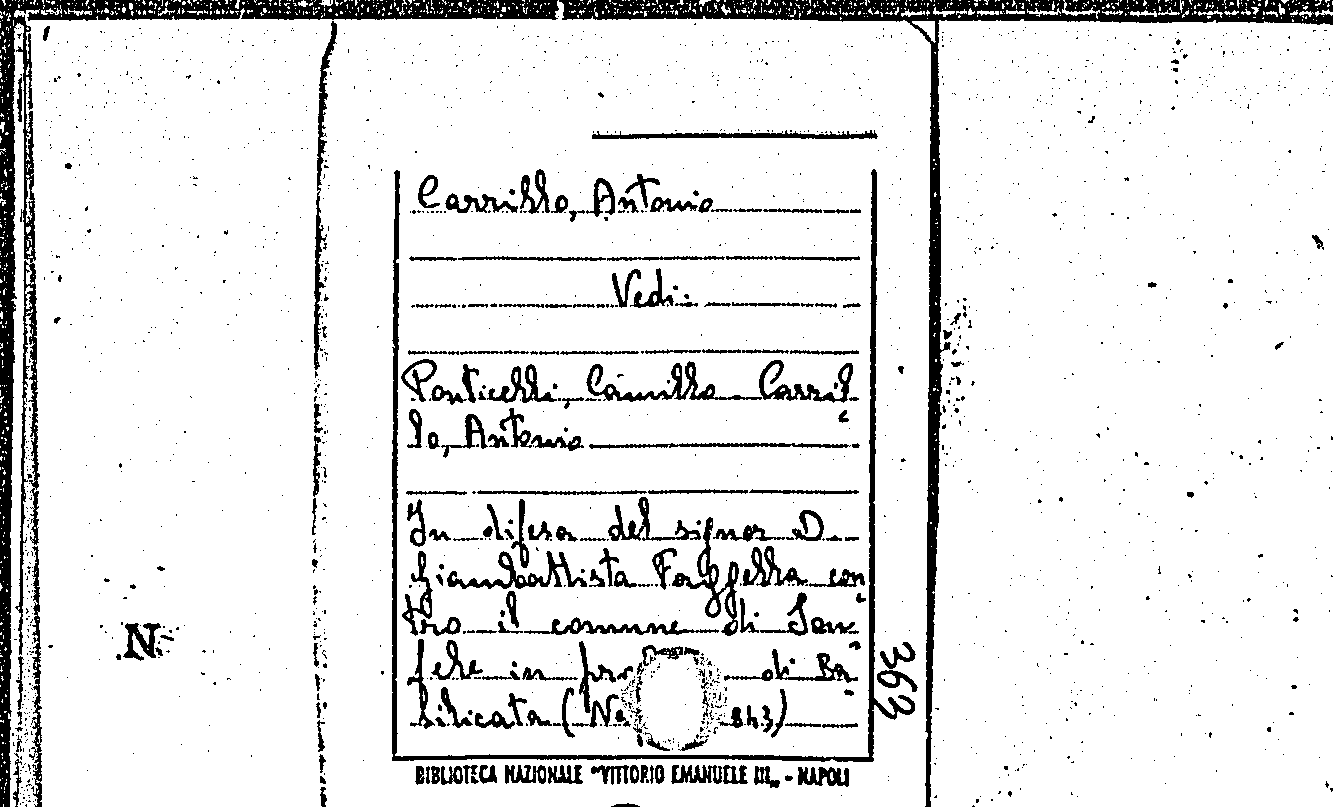 Carrillo, Antonio
Vedi:
Ponticelli, Camillo - Carril
lo, Antonio
In difesa del signor D.
Giambattista Faggella con
tro il comune di San
fele in di Ba
silicata ( 843)
N
363
BIBLIOTECA NAZIONALE "VITTORIO EMANUELE III„ - NAPOLI